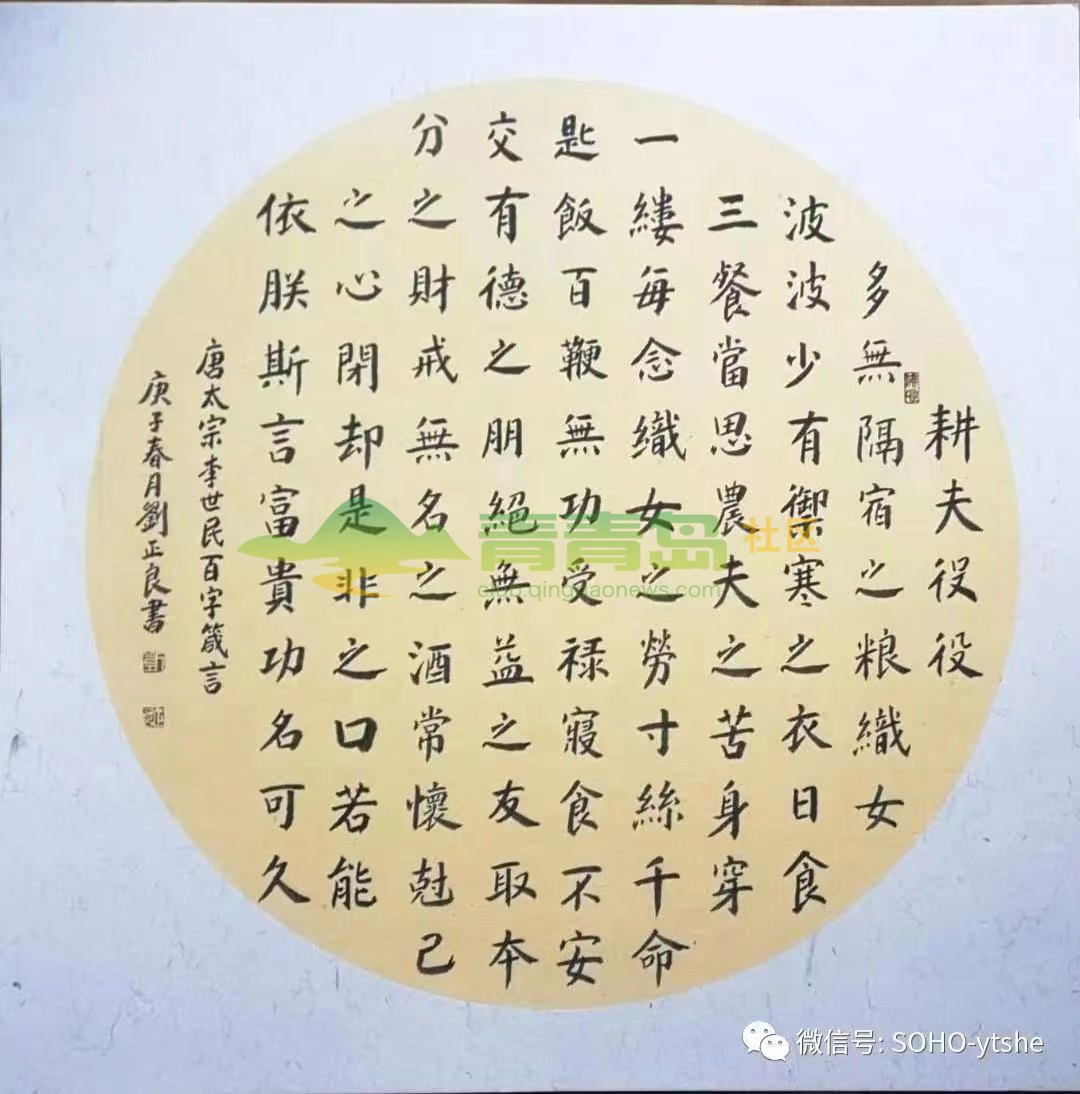 耕夫役役
多無隔宿之粮織女
波波少有禦寒之衣日食
三餐當思農夫之苦身穿
一縷每念織女之勞寸絲千命
匙飯百鞭無功受禄寢食不安
交有德之朋絕無益之友取本
分之財戒無名之酒常懷尅己
之心閉却是非之口若能
依朕斯言富貴功名可久
唐太宗李世民百字箴言
庚子春月劉正良書
青青岛社区
club.qingdaonews.com
微信号: SOHO-ytshe